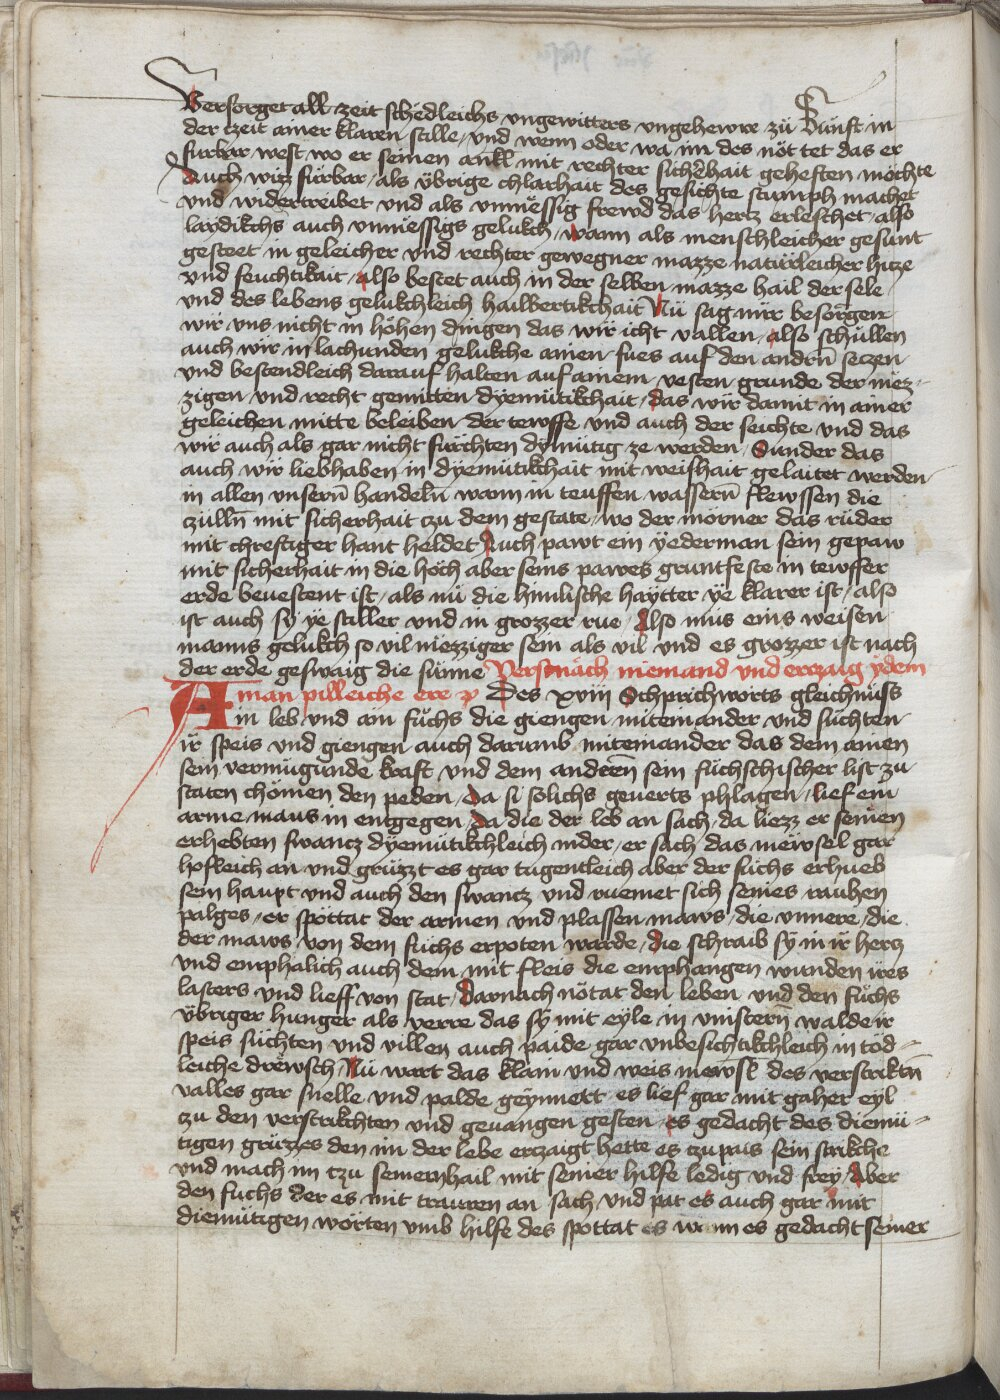 Versorget all zeit schedleichs vngewitters vngehewre zu Sünft in
der czeit ainer klaren stille und wenn oder wa im des nöt tet das er
fürbar west wo er seinen ankl mit rechter sicherhait geheften möchte
Auch wizz fürbar als übrige chlarhait des gesichte stumph machet
vnd widertreibet vnd als vnmëssig frewd das hertz erleschet also
laydikchs auch vnmëssigs gelukch wann als menschleicher gesunt
gesteet in geleicher vnd rechter gewegner mazze natürleicher hitze
vnd feuchtikait also bestet auch in der selben mazze hail der sele
vnd des lebens gelukchleich hailbertikchait Nü sag mir besorgen
wir vns nicht in höhen dingen das wir icht vallen also schüllen
auch wir in lachunden gelukche ainen fues auf den andrn̄ seczen
vnd bestendleich darauf halten auf ainem vesten grunde der mëz-
zigen vnd recht gemitten dyemütikchait das wir damit in ainer
geleichen mitte beleiben der tewffe vnd auch der seichte vnd das
wir auch als gar nicht fürchten dymütig ze werden Sunder das
auch wir liebhaben in dyemütikchait mit weishait gelaitet werden
in allen vnsern̄ handeln̄ wann in teuffen wassern̄ flewssen die
zülln̄ mit sicherhait czu dem gestate wo der mörner das rüder
mit chreftiger hant heldet Auch pawt ein yederman sein gepaw
mit sicherhait in die höch aber seins pawes gruntfeste in tewffer
erde beuestent ist als nü die himlische haytter ye klarer ist also
ist auch sy ye stiller vnd in grozzer rue Also mus eins weisen
manns gelukch so vil mëzziger sein als vil vnd es grozzer ist nach
der erde geswaig die sünne Versmäch niemand vnd erczaig ydem
man pilleiche ere Des xviij Sprichworts gleichnüss
Ain leb vnd ain fuchs die giengen miteinander vnd süchten
ir speis vnd giengen auch darumb miteinander das dem ainen
sein vermügunde kraft vnd dem andern̄ sein füchschischer list zu
staten chömen den peden Da si solichs geuerts phlagen lief ein
arme maus in entgegen da die der leb an sach da liezz er seinen
erhebten swancz dyemütikchleich nider er sach das mëwsel gar
hofleich an vnd grüzzt es gar tugentleich aber der fuchs erhueb
sein haupt vnd auch den swancz vnd ruemet sich seines rauhen
palges er spottat der armen vnd plassen maws die vnnere die
der maws von dem fuchs erpoten warde die schraib sy in ir hertz
vnd emphalich auch dem mit fleis die emphangen wunden ires
lasters vnd lieff von stat Darnach nötat den leben vnd den fuchs
übriger hunger als verre das sy mit eyle in vinstern̄ walde ir
speis süchten vnd villen auch paide gar vnbesichtikchleich in tod-
leiche drëwsch Nü wart das klain vnd weis mewsl des verstriktn̄
valles gar snelle vnd palde geynnert es lief gar mit gaher eyl
zu den verstrikchten vnd geuangen gesten es gedacht des diemü-
tigen grüzzes den im der lebe erczaigt hette es czupais sein strikche
vnd mach im tzu seinem hail mit seiner hilfe ledig vnd frey Aber
den fuchs der es mit trauren an sach vnd pat es auch gar mit
diemütigen worten vmb hilfe des spottat es wann es gedacht seiner